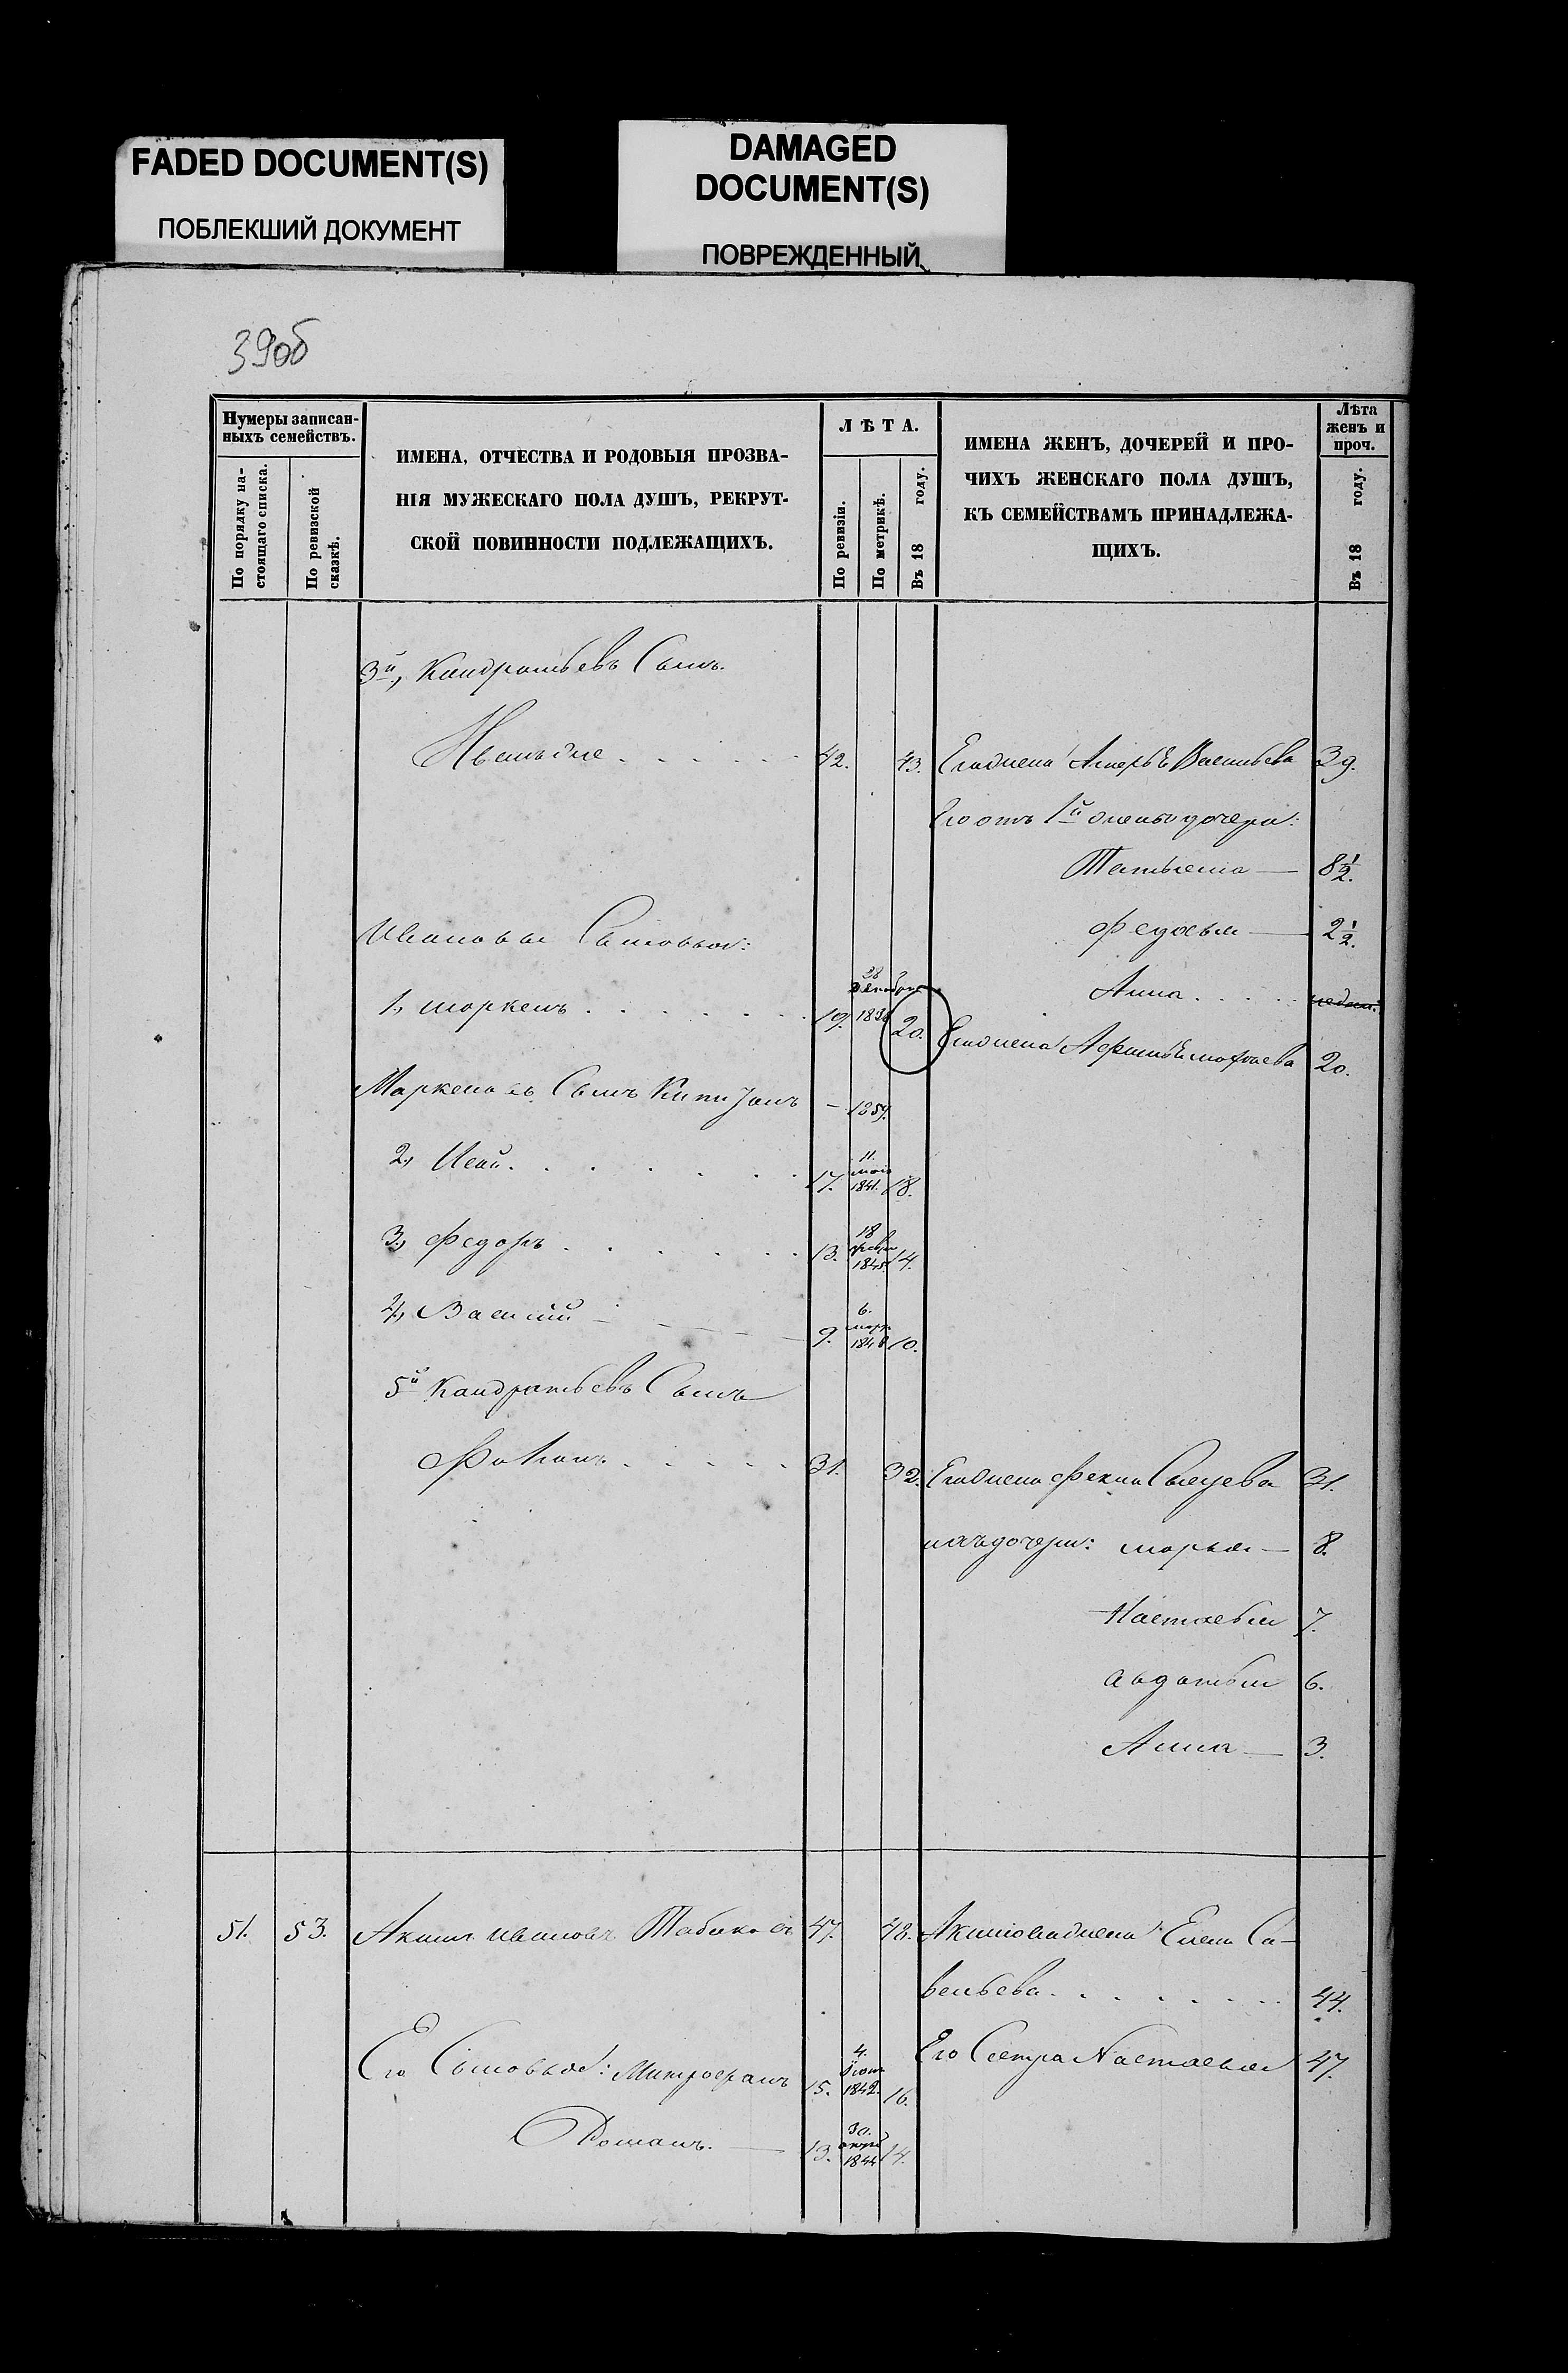 FADED DOCUMENT(S)
ПОБЛЕКШИЙ ДОКУМЕНТ
DAMAGED
DOCUMENT(S)
ПОВРЕЖДЕННЫЙ
39об
Нумеры записан-
ныхъ семействъ.
По порядку на-
стоящаго списка.
По ревизской
сказкѣ.
ИМЕНА, ОТЧЕСТВА И РОДОВЫЯ ПРОЗВА-
НІЯ МУЖЕСКАГО ПОЛА ДУШЪ, РЕКРУТ-
СКОЙ ПОВИННОСТИ ПОДЛЕЖАЩИХЪ.
ЛѢТА.
По ревизіи.
По метрикѣ.
Въ 18 году.
ИМЕНА ЖЕНЪ, ДОЧЕРЕЙ И ПРО-
ЧИХЪ ЖЕНСКАГО ПОЛА ДУШЪ,
КЪ СЕМЕЙСТВАМЪ ПРИНАДЛЕЖА-
ЩИХЪ.
Лѣта
женъ и
проч.
Въ 18 году.
3й, Кандратьевъ Сынъ.
42. 43. Его жена Васильева 39.
Его отъ 1й жены дочери:
Татьяна 8 1/2.
Федосья 2 1/2.
Ивановы Сыновья:
Анна
1, Маркелъ 19. 28 декабря 1838 20. Его жена 20.
Маркеловъ Сынъ - 1859.
2, 17. 11. мая 1841. 18.
3, Федоръ 13. 18 февр 1845. 14.
4, Василій 9. 6. март 1848 10.
5й Кандратьевъ Сынъ
31. 32. Его жена Фекла 31.
ихъ дочери: Марья 8.
Настасья 7.
Авдотья 6.
Анна 3.
51. 53. Акимъ Ивановъ Табаковъ 47. 48. Акимова жена Елена Са-
вельева 44.
Его Сыновья: Митрофанъ 15. 4. Іюня 1842. 16. Его Сестра Настасья 47.
Романъ. 13. 30. апрѣ 1844 14.